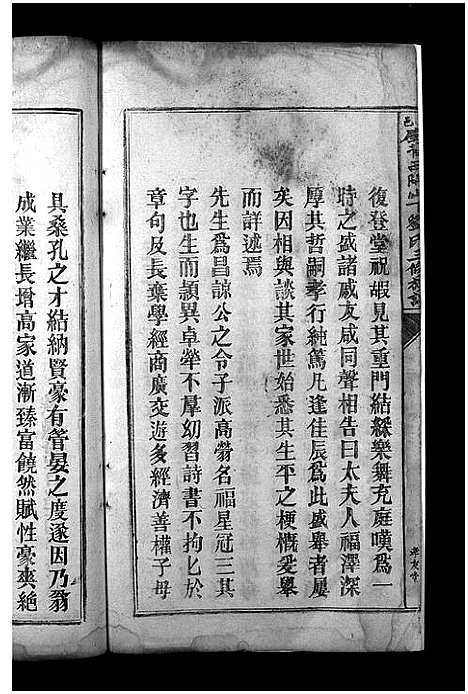 復登堂祝嘏見其重門結綵樂舞充庭嘆爲一
時之盛諸戚友咸同聲相告曰太夫人福澤深
厚其哲嗣孝行純篤凡逢佳辰爲此盛舉者屢
矣因相與談其家世始悉其生平之梗概爰舉
而詳述焉
先生爲昌諒公之令子派高勞名福星冠三其
字也生而頴異卓犖不羣幼習詩書不拘匕於
章句及長棄學經商廣交遊多經濟善權子母
具桑孔之才結納賢豪有管晏之度遂因乃翁
成業繼長增高家道漸臻富饒然賦性豪爽絶